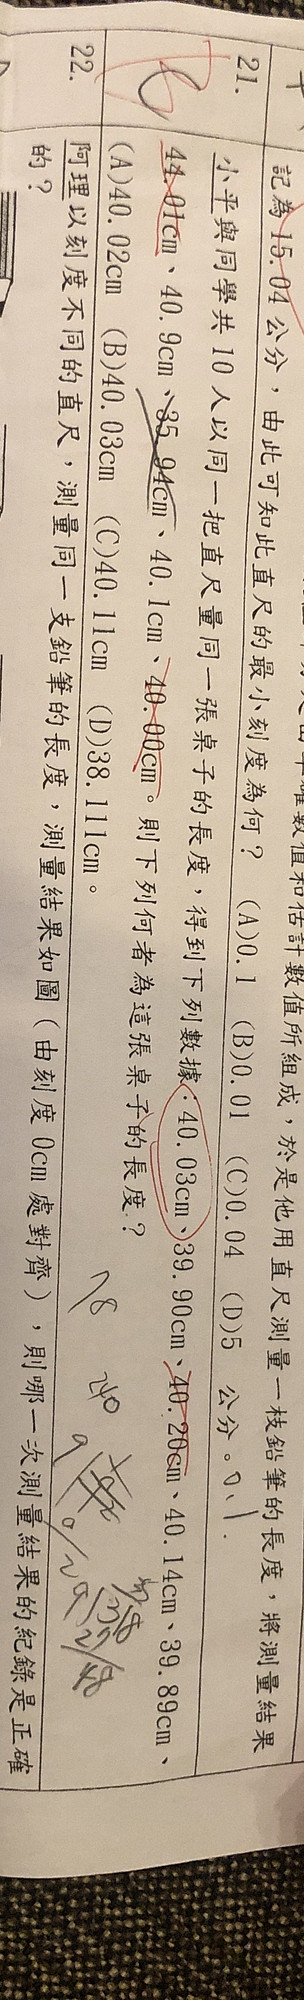 記為 15.04 公分，由此可知此直尺的最小刻度為何？ (A)0.1 (B)0.01 (C)0.04 (D)5 公分。0.1.
21. 小平與同學共 10 人以同一把直尺量同一張桌子的長度，得到下列數據：40.03cm、39.90cm、40.20cm、40.14cm、39.89cm、
44.01cm、40.9cm、35.94cm、40.1cm、40.00cm。則下列何者為這張桌子的長度？
(A)40.02cm (B)40.03cm (C)40.11cm (D)38.111cm。
22. 阿理以刻度不同的直尺，測量同一支鉛筆的長度，測量結果如圖（由刻度 0cm 處對齊），則哪一次測量結果的紀錄是正確
的？